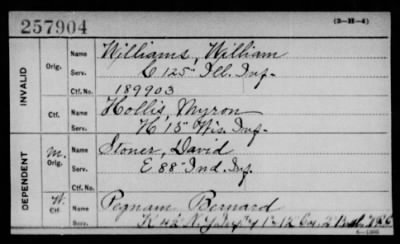 257904
(3-H-4)
INVALID
Orig.
Name Williams, William
Serv. C 125" Ill. Inf.
Ctf. No. 189903
Ctf.
Name Hollis, Myron
Serv. K 15" Wis. Inf.
DEPENDENT
M.
Orig.
Name Stoner, David
Serv. E 88" Ind. Inf.
W.
Ctf.
Name Pegnam Bernard
Serv. K N.Y. Inf & 12 Co, 2 Batt. VRC